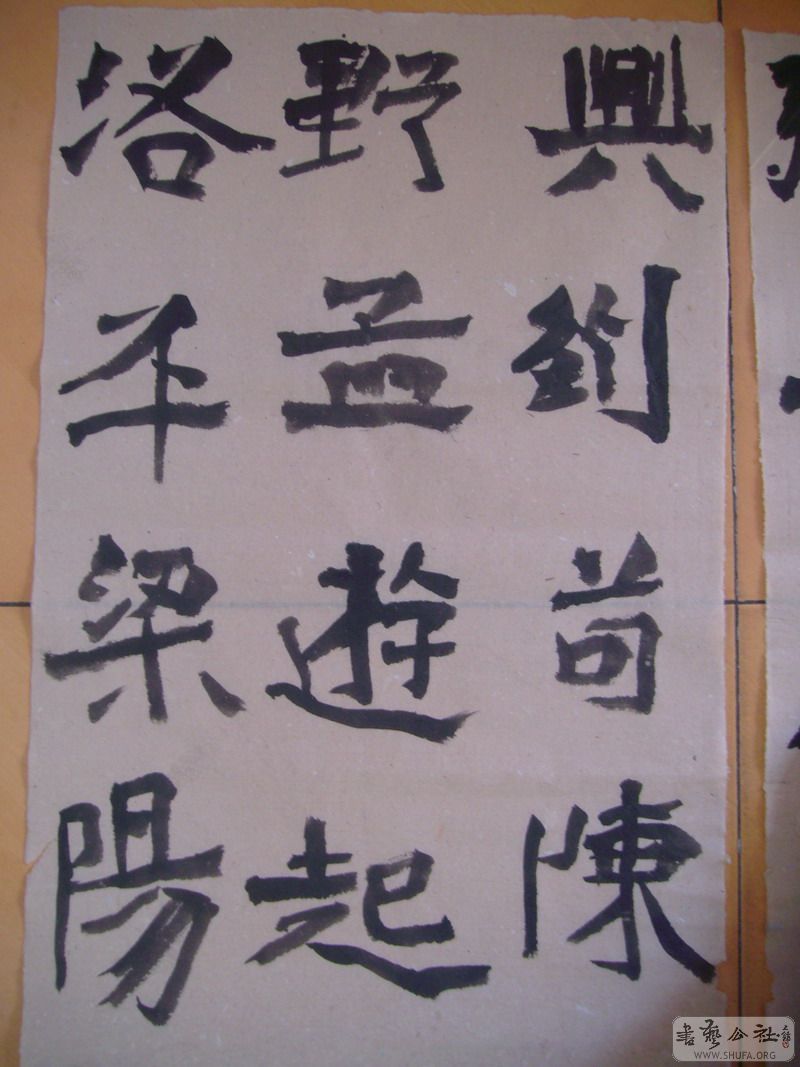 興釗苟陳
野孟遊起
洛平梁陽
書藝公社
WWW.SHUFA.ORG